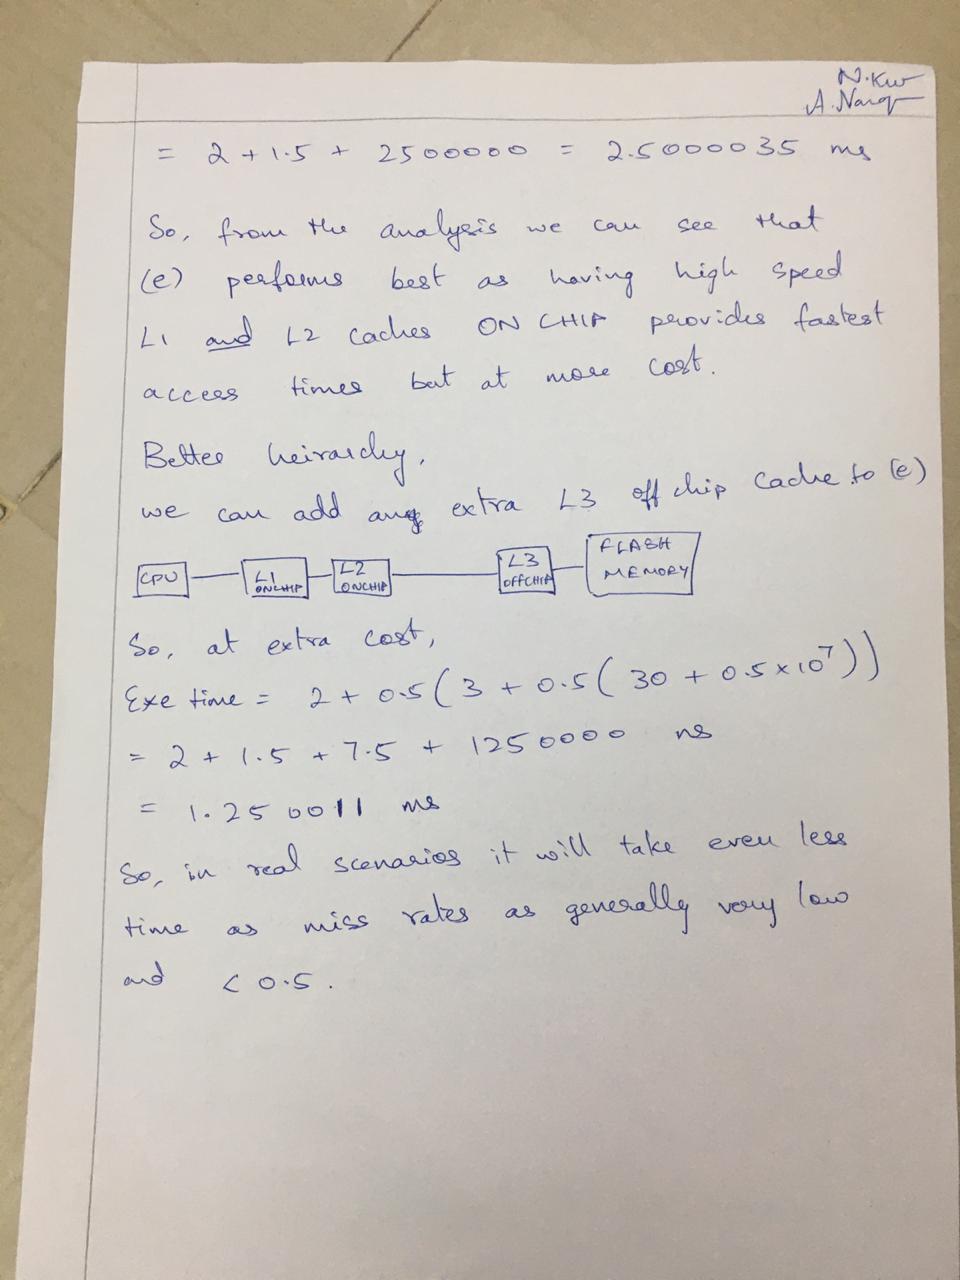 N.Kur
A.Narg
= 2 + 1.5 + 2500000 = 2.5000035 ms
So, from the analysis we can see that
(e) performs best as having high speed
L1 and L2 caches ON CHIP provides fastest
access times but at more cost.
Better heirarchy,
we can add any extra L3 off chip Cache to (e)
CPU L1 ONCHIP L2 ONCHIP L3 OFFCHIP FLASH MEMORY
So, at extra cost,
Exe time = 2 + 0.5(3 + 0.5(30 + 0.5×10⁷))
= 2 + 1.5 + 7.5 + 1250000 ns
= 1.250011 ms
So, in real scenarios it will take even less
time as miss rates as generally very low
and < 0.5.